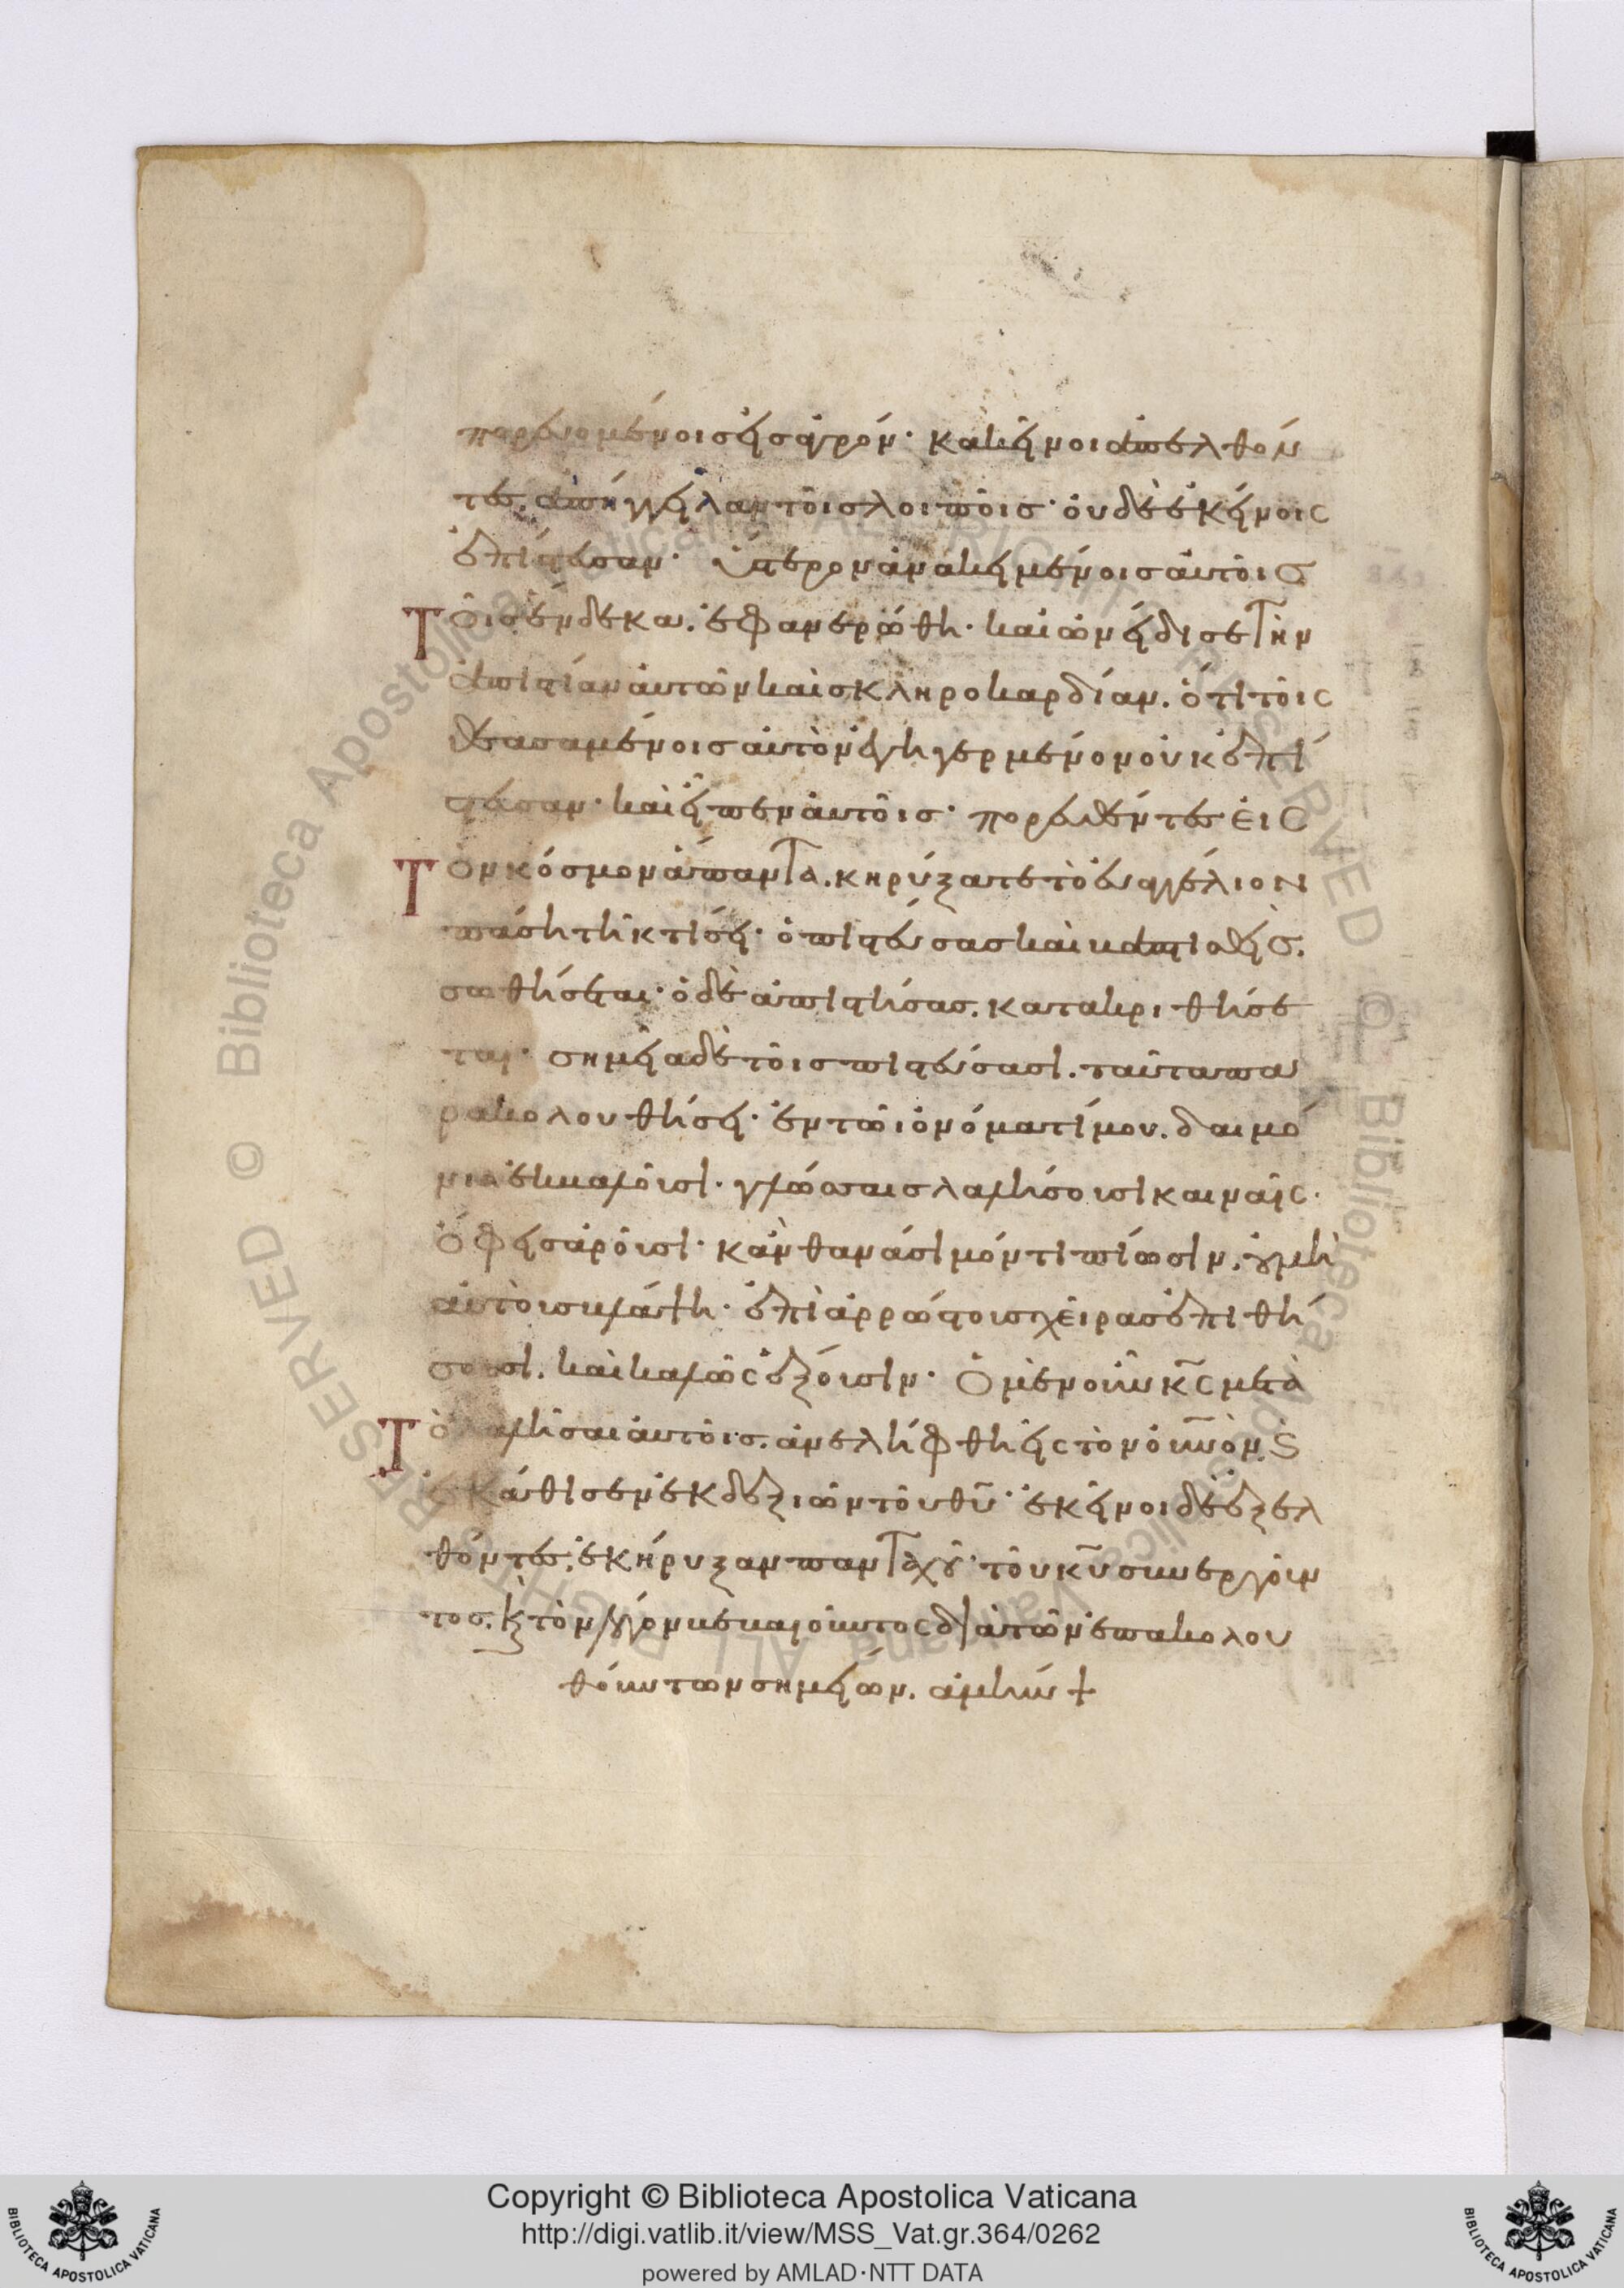 πορευομένοις εἰς ἀγρόν· κἀκεῖνοι ἀπελθόν
τες, ἀπήγγειλαν τοῖς λοιποῖς· οὐδὲ ἐκείνοις
ἐπίστευσαν· ὕστερον ἀνακειμένοις αὐτοῖς
Τοῖς ἕνδεκα. ἐφανερώθη· καὶ ὠνείδισε τὴν
ἀπιστίαν αὐτῶν καὶ σκληροκαρδίαν. ὅτι τοῖς
θεασαμένοις αὐτὸν ἐγηγερμένον οὐκ ἐπί
στευσαν· καὶ εἶπεν αὐτοῖς· πορευθέντες εἰς
Τὸν κόσμον ἅπαντα. κηρύξατε τὸ εὐαγγέλιον
πάσῃ τῇ κτίσει· ὁ πιστεύσας καὶ βαπτισθεὶς.
σωθήσεται· ὁ δὲ ἀπιστήσας. κατακριθήσε
ται· σημεῖα δὲ τοῖς πιστεύσασι. ταῦτα πα
ρακολουθήσει· ἐν τῶι ὀνόματί μου. δαιμό
νια ἐκβαλοῦσι· γλώσσαις λαλήσουσι καιναῖς·
ὄφεις ἀροῦσι· κἂν θανάσιμόν τι πίωσιν. οὐ μὴ
αὐτοὺς βλάψη· ἐπὶ ἀρρώστους χεῖρας ἐπιθή
σουσι. καὶ καλῶς ἕξουσιν· Ὁ μὲν οὖν κ̅ς̅ μετὰ
Τὸ λαλῆσαι αὐτοῖς. ἀνελήφθη εἰς τὸν οὐ̅νὸν. ϛ
ἐκάθισεν ἐκ δεξιῶν τοῦ θ̅υ̅· ἐκεῖνοι δὲ ἐξελ
θόντες, ἐκήρυξαν πανταχοῦ· τοῦ κ̅υ̅ συνεργοῦν
τος. ϗ τὸν λόγον βεβαιοῦντος διὰ τῶν ἐπακολου
θούντων σημείων. ἀμήν +
Copyright © Biblioteca Apostolica Vaticana
http://digi.vatlib.it/view/MSS_Vat.gr.364/0262
powered by AMLAD·NTT DATA
BIBLIOTECA APOSTOLICA VATICANA
BIBLIOTECA APOSTOLICA VATICANA